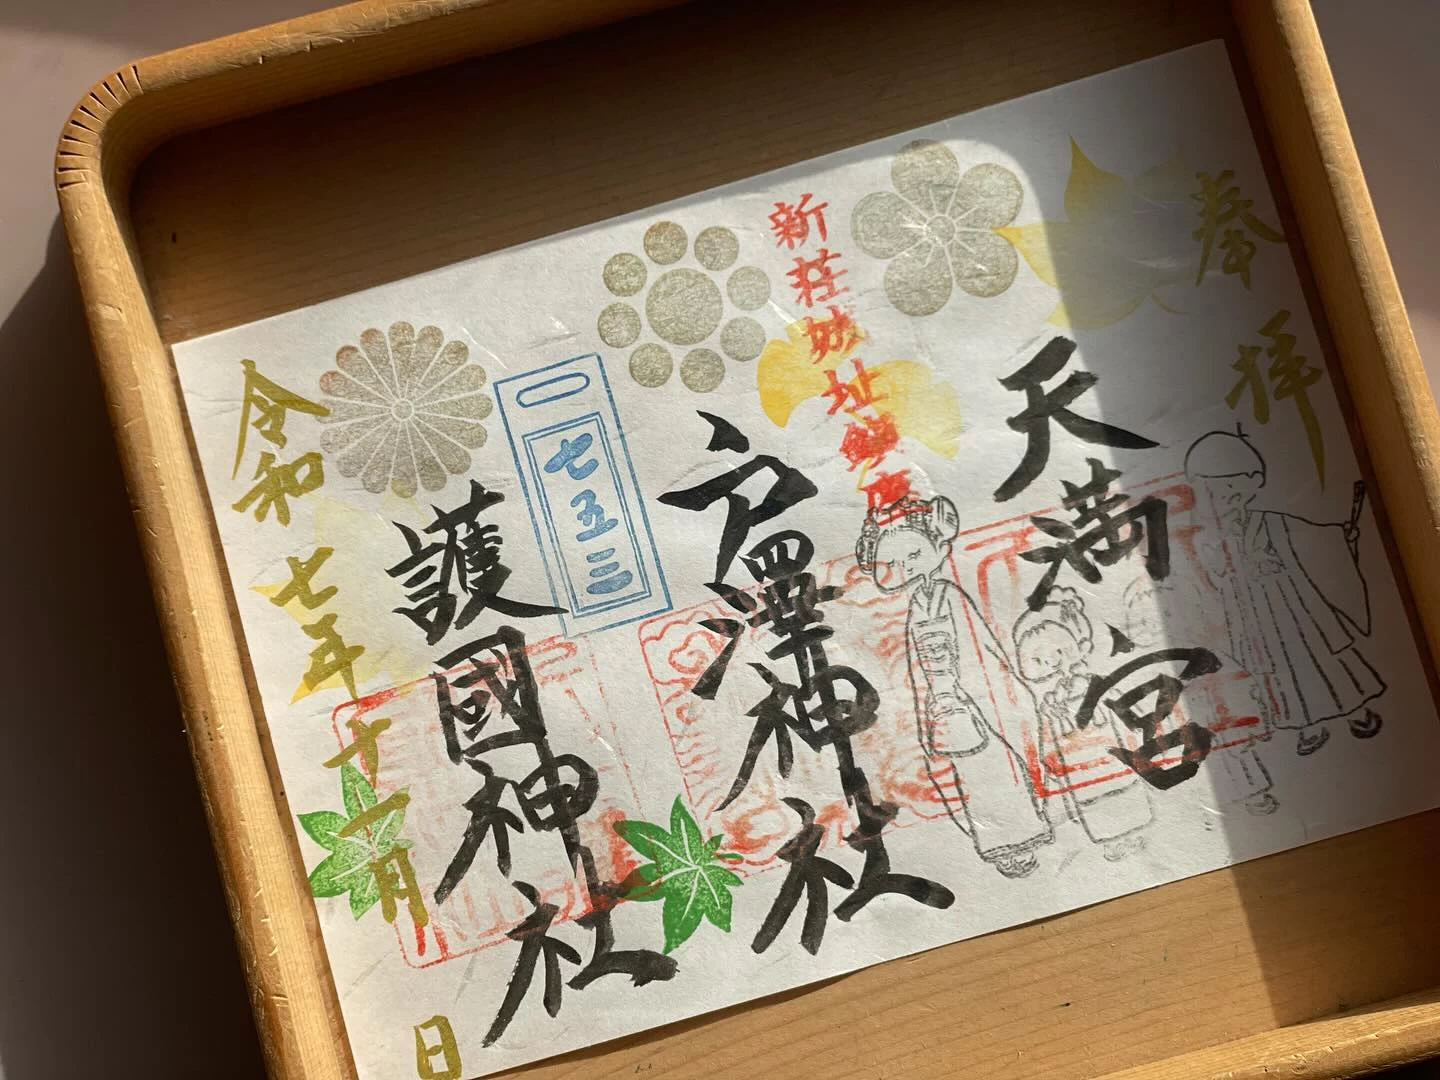 奉拝
天満宮
新荘城址鎮座
戸澤神社
七五三
護國神社
令和七年十一月 日